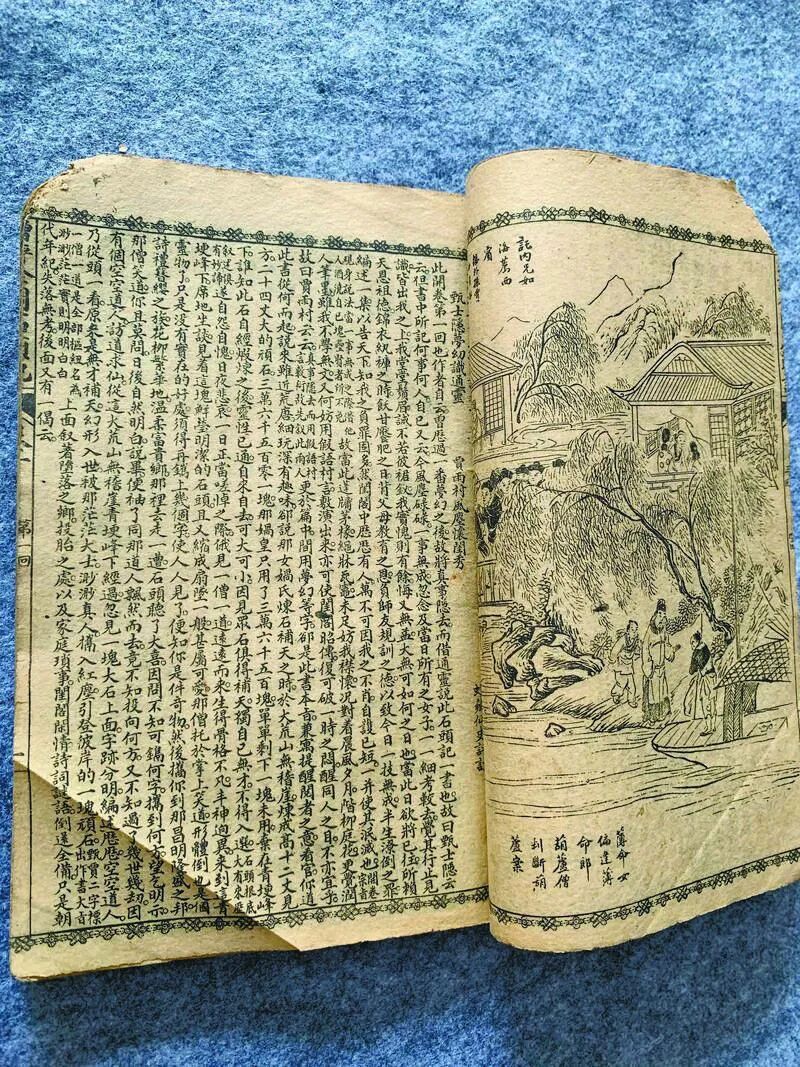 託內兄如
海薦西
賓
薄命女
偏逢薄
命郎
葫蘆僧
判斷葫
蘆案
甄士隱夢幻識通靈　賈雨村風塵懷閨秀
此開卷第一回也作者自云曾歷過一番夢幻之後故將真事隱去而借通靈說此石頭記一書也故曰甄士隱云
云但書中所記何事何人自己又云今風塵碌碌一事無成忽念及當日所有之女子一一細考較去覺其行止見
識皆出我之上我堂堂鬚眉誠不若彼裙釵我實愧則有餘悔又無益大無可如何之日也當此日欲將已往所賴
天恩祖德錦衣紈袴之時飫甘饜肥之日背父母教育之恩負師友規訓之德以致今日一技無成半生潦倒之罪
編述一集以告天下知我之負罪固多然閨閣中歷歷有人萬不可因我之不肖自護己短一并使其泯滅也開卷
現身說法故當此蓬牖茅椽繩牀瓦竈未足妨我襟懷況對着晨風夕月階柳庭花更覺潤
人筆墨雖我不學無文又何妨用假語村言敷演出來亦可使閨閣昭傳復可破一時之悶醒同人之目不亦宜乎
故曰賈雨村云云真事隱去而用假語村言敷衍故敘此兩人更於篇中間用夢幻等字卻是此書本旨兼寓提醒閱者之意看官你道
此書從何而起說來雖近荒唐細玩深有趣味卻說那女媧氏煉石補天之時於大荒山無稽崖煉成高十二丈見
方二十四丈大的頑石三萬六千五百零一塊那媧皇只用了三萬六千五百塊單單剩下一塊未用棄在青埂峰
下誰知此石自經煅煉之後靈性已通自來自去可大可小因見眾石俱得補天獨自己無才不得入選
遂自怨自愧日夜悲哀一日正當嗟悼之際俄見一僧一道遠遠而來生得骨格不凡丰神迥異來到這青
埂峰下席地坐談見着這塊鮮瑩明潔的石頭且又縮成扇墜一般甚屬可愛那僧托於掌上笑道形體倒也是個
靈物了只是沒有實在的好處須得再鐫上幾個字使人人見了便知你是件奇物然後攜你到那昌明隆盛之邦
詩禮簪纓之族花柳繁華地溫柔富貴鄉那裡去走一遭石頭聽了大喜因問不知可鐫何字攜到何方望乞明示
那僧笑道你且莫問日後自然明白說畢便袖了同那道人飄然而去竟不知投向何方又不知過了幾世幾劫因
有個空空道人訪道求仙從這大荒山無稽崖青埂峰下經過忽見一塊大石上面字跡分明編述歷歷空空道人
乃從頭一看原來是無才補天幻形入世被那茫茫大士渺渺真人攜入紅塵引登彼岸的一塊頑石甄賈二字標出作書大旨
一僧一道是全部樞紐名為渺渺茫茫實則明明白白上面敘着墮落之鄉投胎之處以及家庭瑣事閨閣閒情詩詞謎語倒還全備只是朝
代年紀失落無考後面又有一偈云
第一回